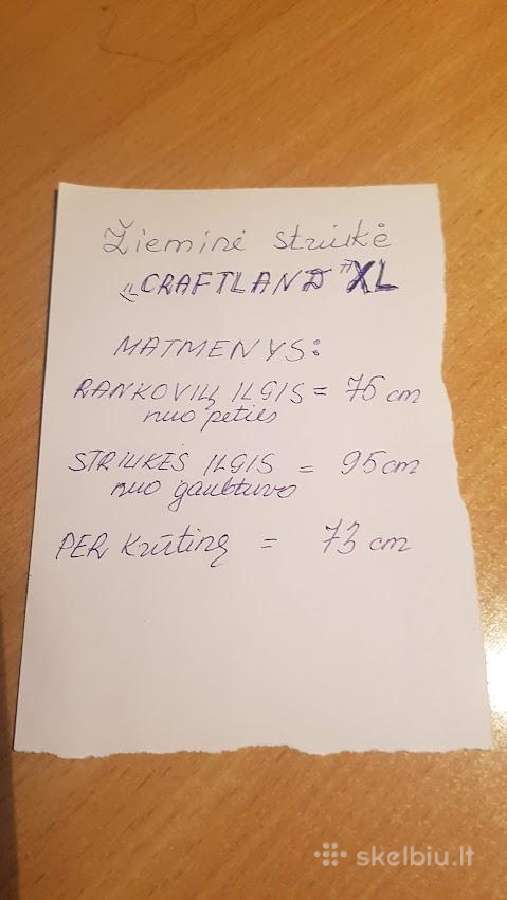 Žieminė striukė
„CRAFTLAND" XL
MATMENYS:
RANKOVIŲ ILGIS = 76 cm
nuo peties
STRIUKĖS ILGIS = 95 cm
nuo gaubtuvo
PER Krūtinę = 73 cm
skelbiu.lt